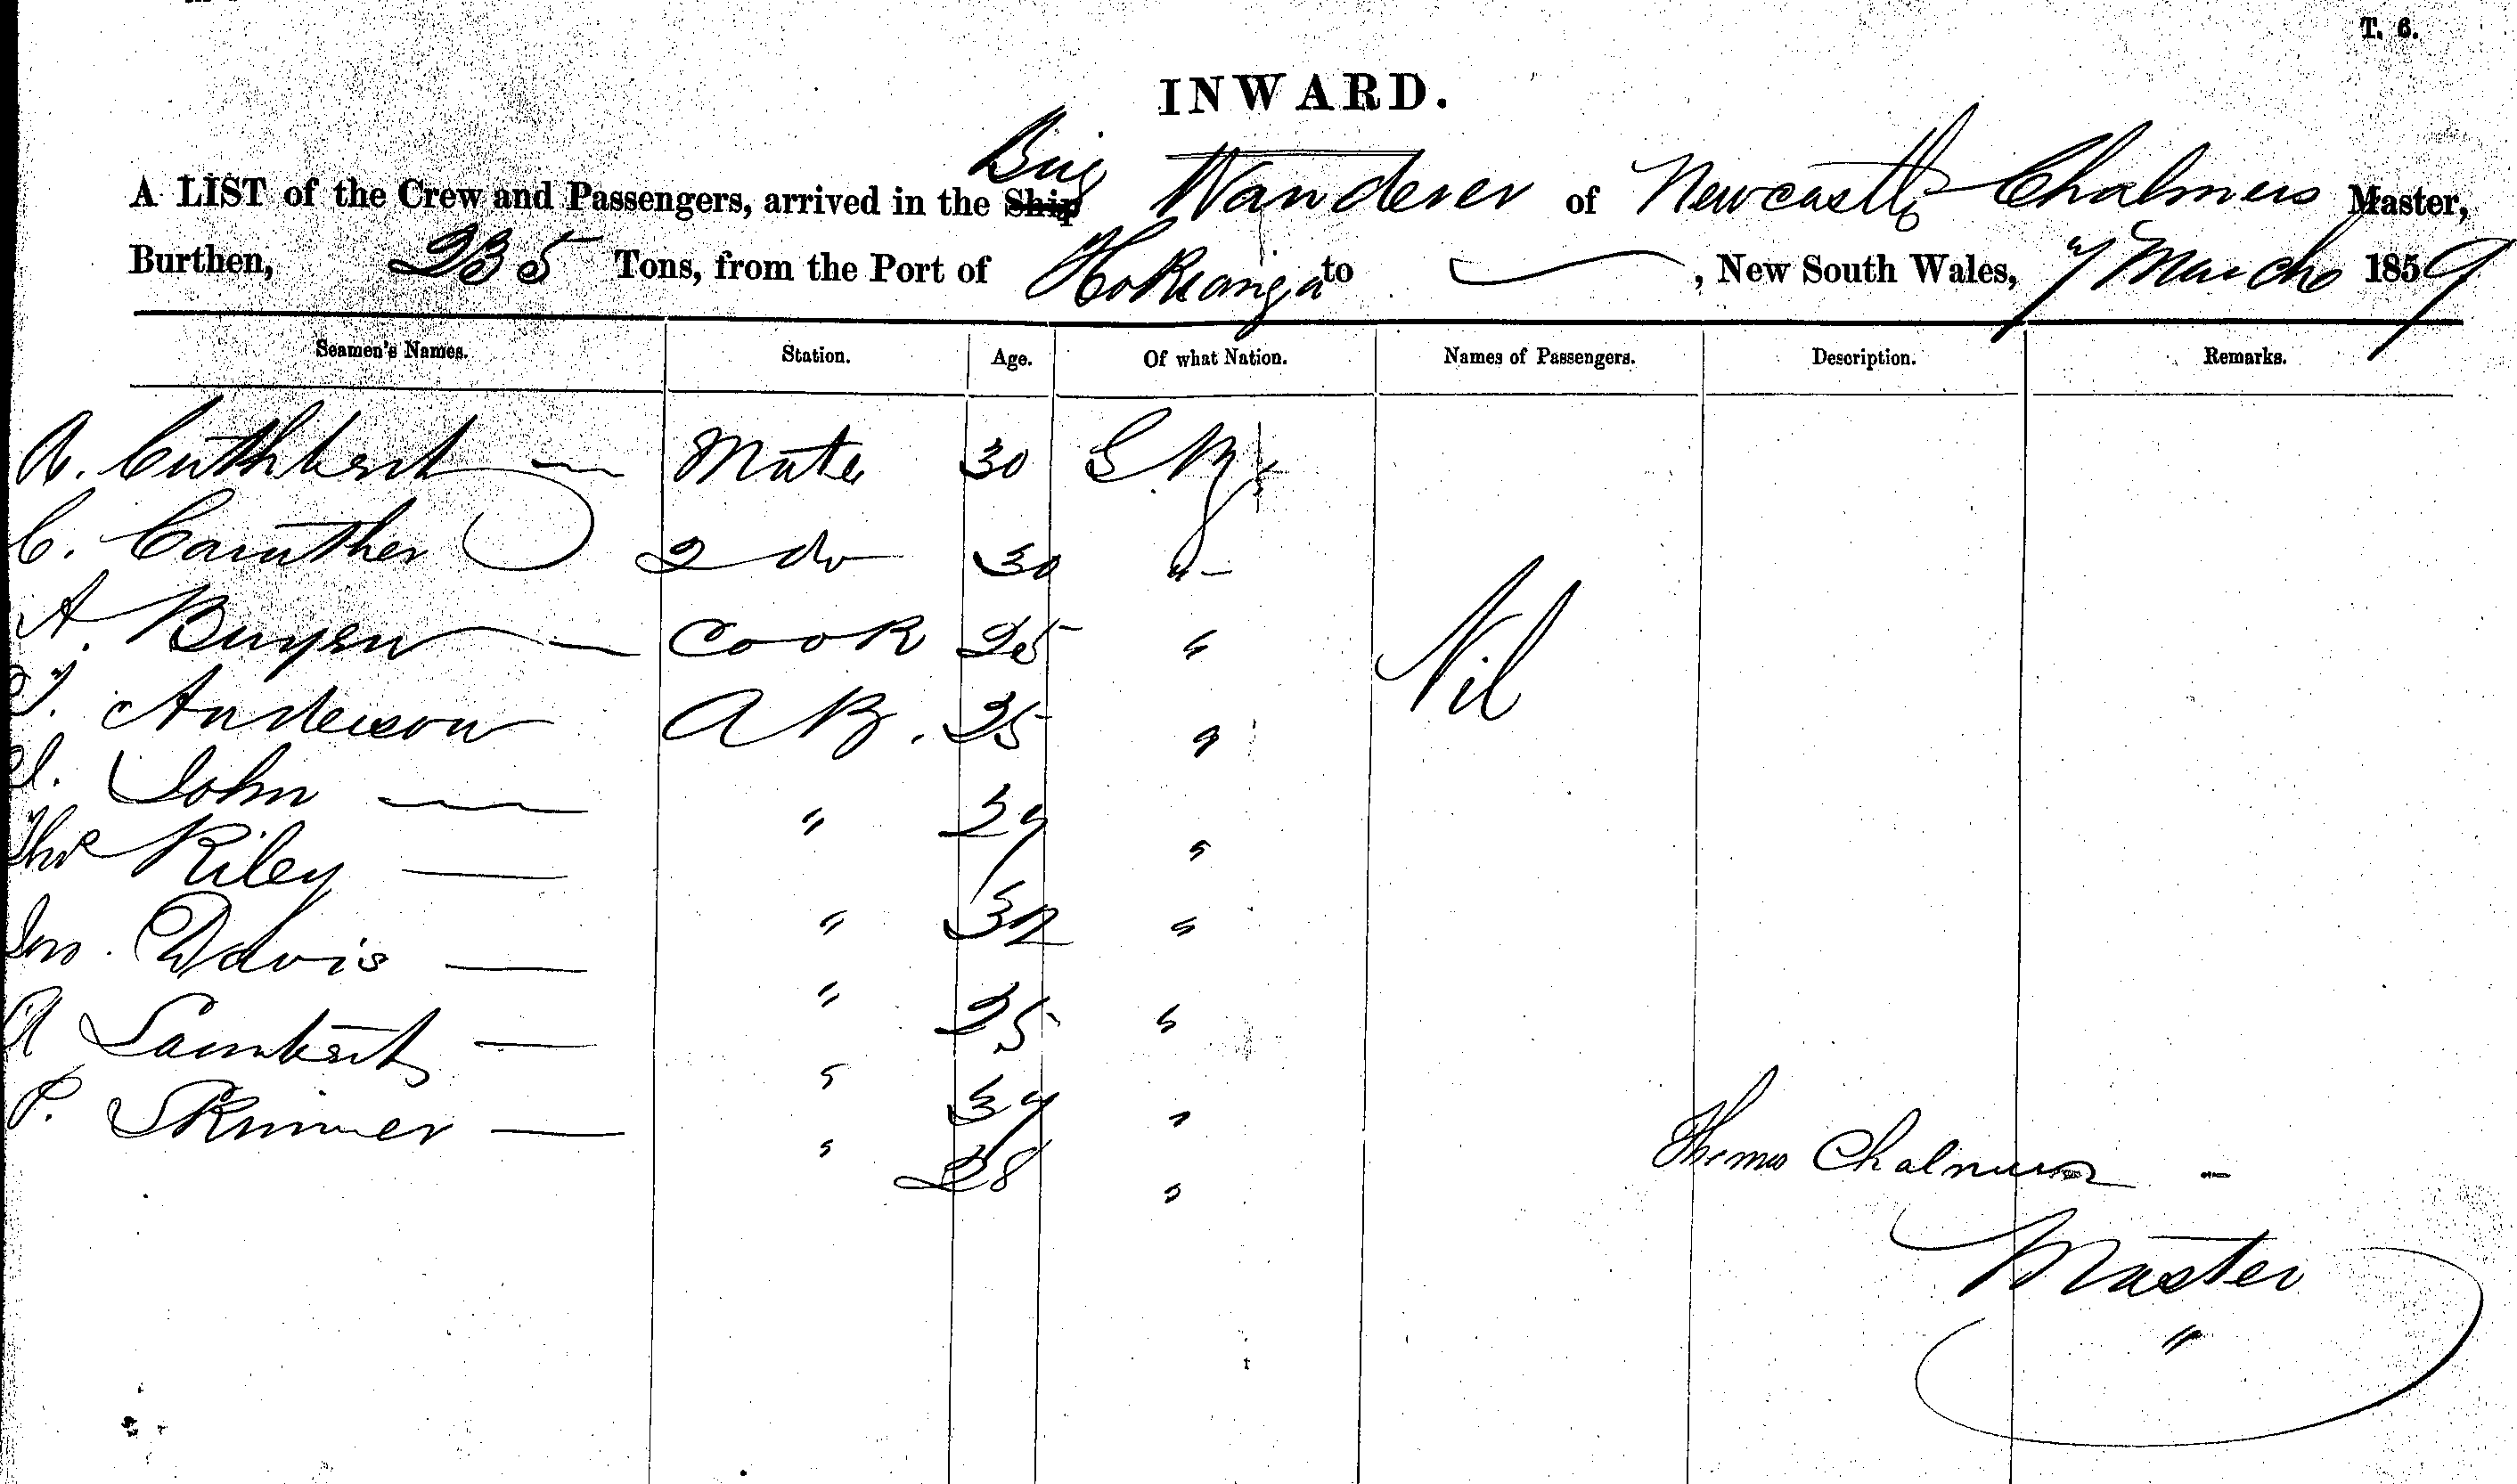 T. 6.
INWARD.
Brig
A LIST of the Crew and Passengers, arrived in the Ship Wanderer of Newcastle Chalmers Master,
Burthen, 235 Tons, from the Port of Hokianga to , New South Wales, 7 March 1859
Seamen's Names. Station. Age. Of what Nation. Names of Passengers. Description. Remarks.
A. Cuthbert — Mate 30 G. B.
C. Caruther 2 do 30 "
A. — Cook 25 "
Anderson A B. 35 "
John — " 34 "
Nil
Thos Riley — " 32 "
Jno. Davis — " 35 "
A Lambert — " 34 "
P. Skinner — " 28 "
Thomas Chalmers -
Master
"